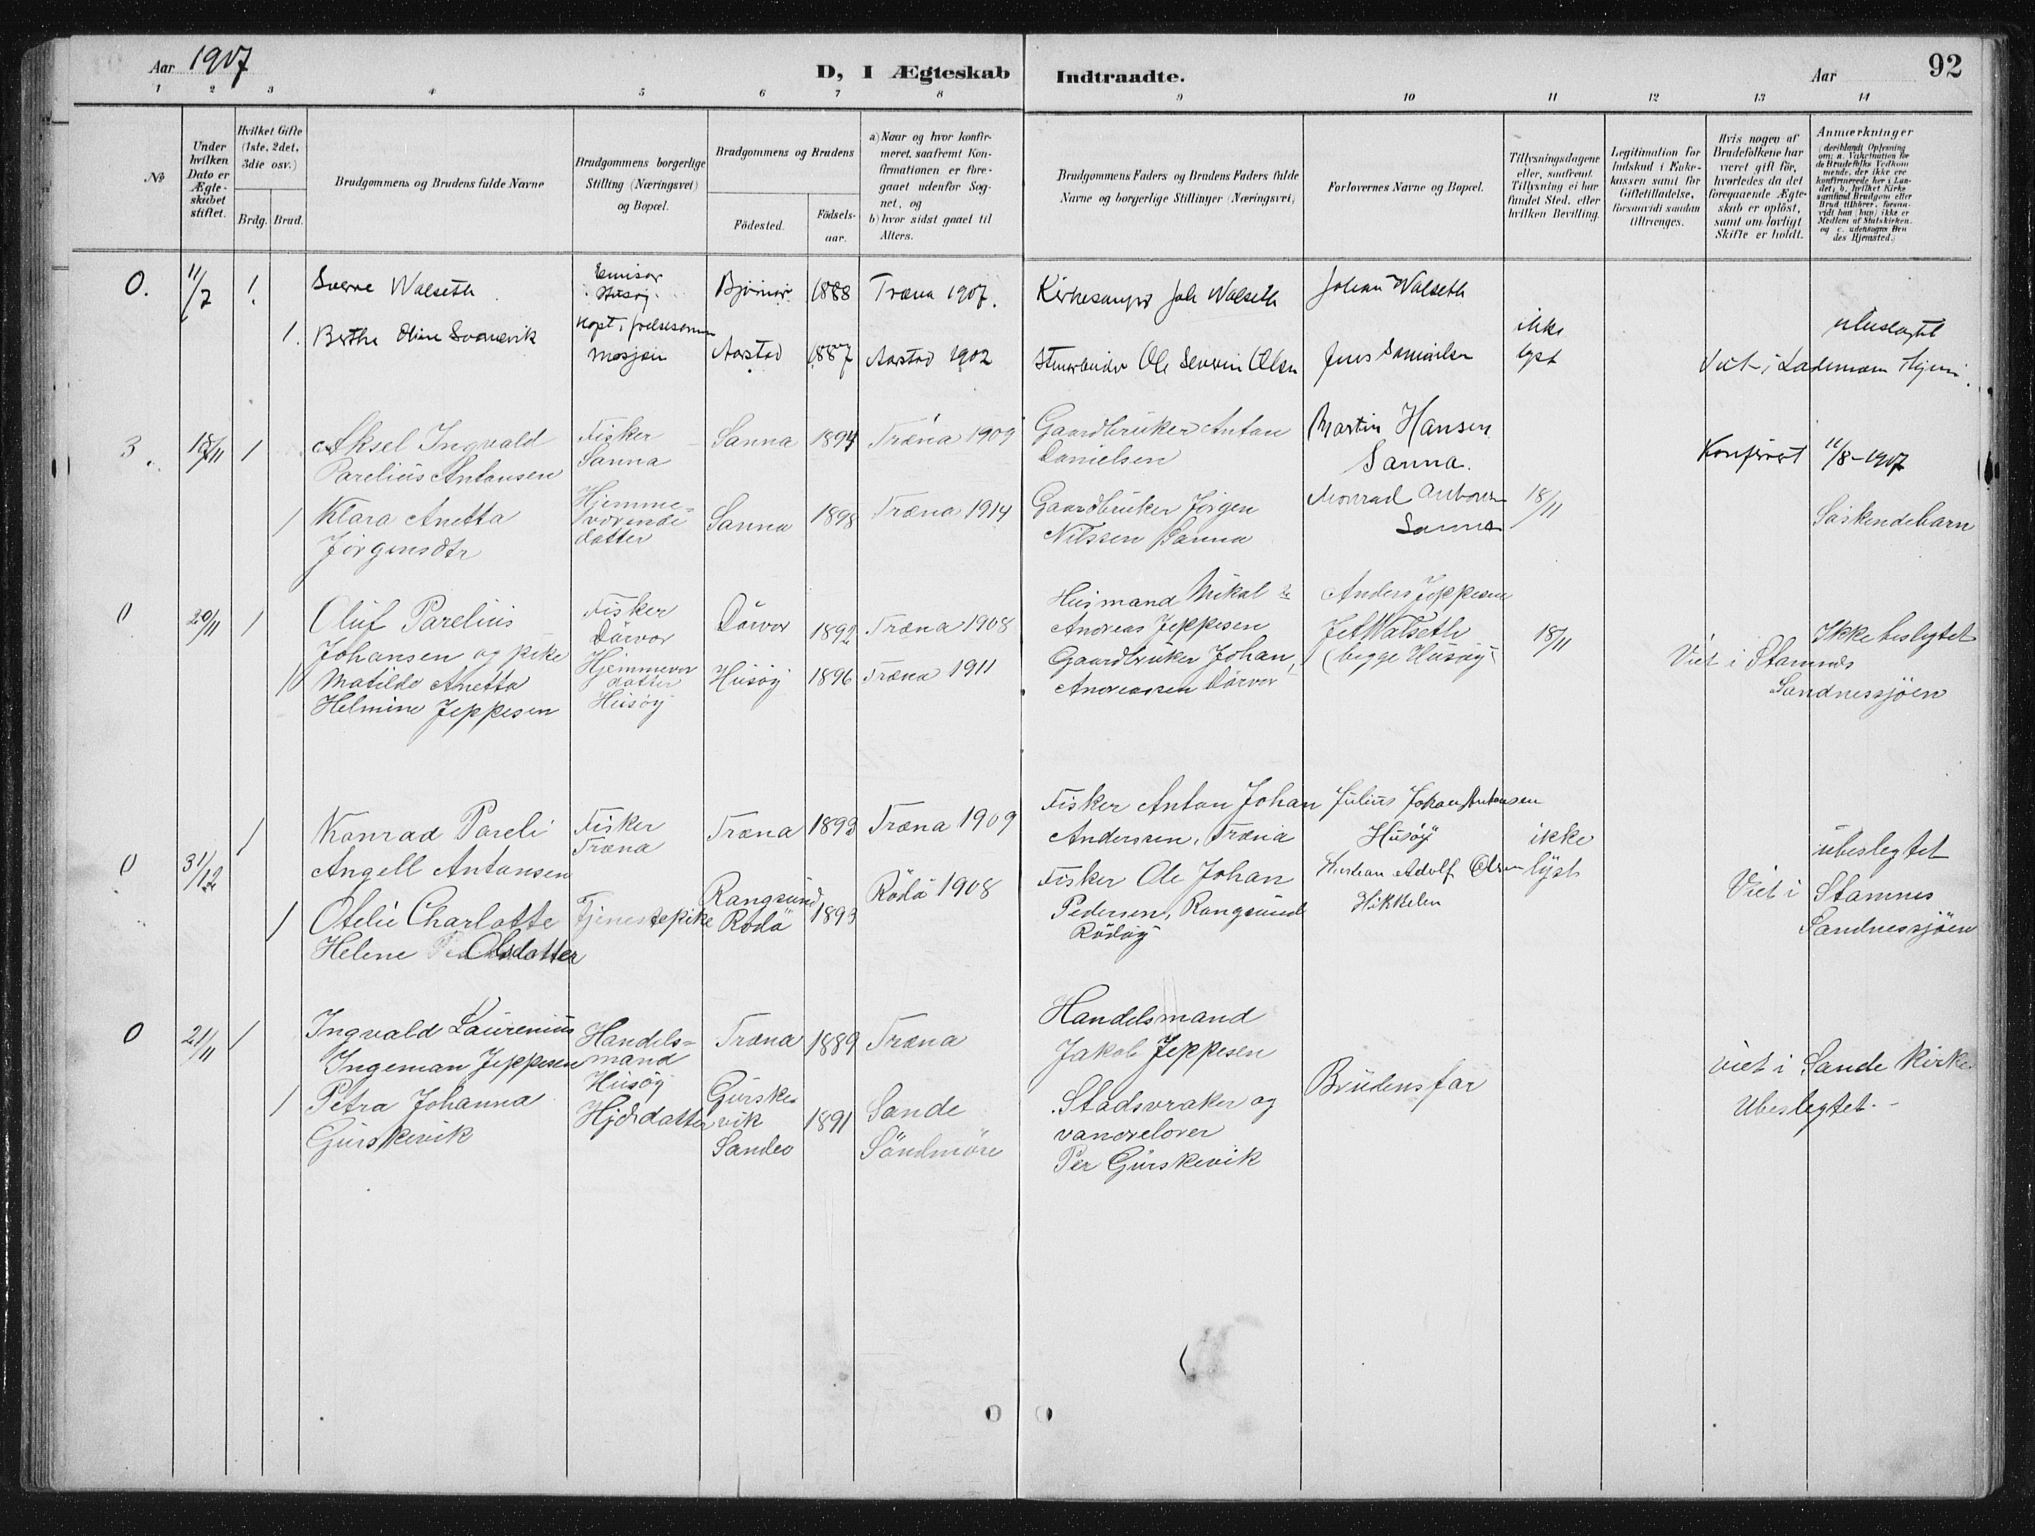 Aar 1917
D, I Ægteskab
Indtraadte.
Aar
92
1 2 3 4 5 6 7 8 9 10 11 12 13 14
No
Under hvilken Dato er Ægteskabet stiftet.
Hvilket Gifte (1ste, 2det, 3die osv.)
Brdg. Brud.
Brudgommens og Brudens fulde Navne
Brudgommens borgerlige Stilling (Næringsvei) og Bopæl.
Brudgommens og Brudens
Födested.
Födsels-aar.
a) Naar og hvor konfirmeret, saafremt Konfirmationen er foregaaet udenfor Sognet, og
b) hvor sidst gaaet til Alters.
Brudgommens Faders og Brudens Faders fulde Navne og borgerlige Stillinger (Næringsvei)
Forlovernes Navne og Bopæl.
Tillysningsdagene eller, saafremt Tillysning ei har fundet Sted, efter hvilken Bevilling.
Legitimation for Indskud i Enkekassen samt for Giftetilladelse, forsaavidt saadan tiltrænges.
Hvis nogen af Brudefolkene har været gift før, hvorledes da det foregaaende Ægteskab er opløst, samt om lovligt Skifte er holdt.
Anmærkninger
0. 11/7 1 Sverre Walseth
Husøy
1888 Træna 1907.
Kirkesanger Joh Walseth
Johan Walseth
1. Berthe Oline
Mosjøen
Aarstad 1887 Aarstad 1902
Ole Severin Olsen
Jens
ikke lyst
ubeslægtet
Viet i
3. 18/11 1 Aksel Ingvald
Parelius Antonsen
Fisker
Sanna
Sanna 1894 Træna 1909
Gaardbruker Anton
Danielsen
Martin Hansen
Sanna.
Konfirert 11/8-1907
1 Klara Anetta
Jørgensdtr
Hjemme-
værende
datter
Sanna 1898 Træna 1914
Gaardbruker Jörgen
Nilssen Sanna
Sanna
18/11
Søskendebarn
0 20/11 1 Oluf Parelius
Johansen og pike
Fisker
Dörvær
Dörvær 1892 Træna 1908
Husmand Mikal
Andreas Jeppesen
Anders Jeppesen
J et Walseth
(begge Husøy
18/11
Ikke beslegtet
Viet i Stamnes
Sandnessjöen
1 Matilde Anetta
Helmine Jeppesen
Hjemmevær
datter
Husøy
Husøy 1896 Træna 1911
Gaardbruker Johan
Andreassen Dörvær
0 31/12 1 Konrad Pareli
Angell Antonsen
Fisker
Træna
Træna 1893 Træna 1909
Fisker Anton Johan
Andersen, Træna
Julius Johan Antonsen
Husøy
ikke
lyst
ubeslegtet
Viet i Stamnes
Sandnessjöen
1 Otelie Charlotte
Helene Olsdatter
Tjenestepike
Rangsund,
Rödö 1893
Rödö 1908
Fisker Ole Johan
Pedersen, Rangsund
Rödöy
Adolf Olsen
0 21/11 1 Ingvald Laurenius
Ingeman Jeppesen
Handels-
mand
Husøy
Træna 1889 Træna
Handelsmand
Jakob Jeppesen
Brudens far
viet i Sande Kirke
Ubeslegtet.
1 Petra Johanna
Gurskevik
Hjds datter
Gurske
vik
Sande
1891
Sande
Söndmöre
Stadsvraker og
vandrelærer
Per Gurskevik